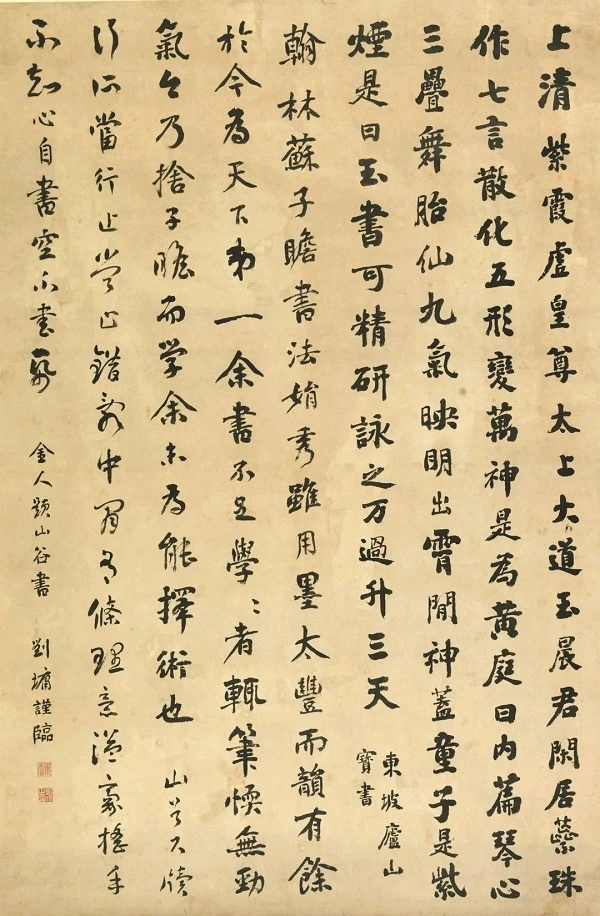 上清紫霞虛皇尊太上大道玉晨君閑居蘂珠
作七言散化五形變萬神是為黃庭曰內篇琴心
三疊舞胎仙九氣映明出霄間神蓋童子是紫
煙是曰玉書可精研詠之万過升三天
東坡廬山
寶書
翰林蘇子瞻書法娟秀雖用墨太豐而韻有餘
於今為天下第一余書不足學〻者輒筆愞無勁
氣今乃捨子瞻而學余未為能擇術也 山谷大牘
行所當行止當止錯綜中間有條理意溢毫搖手
不知心自書空不書紙 金人題山谷書 劉墉謹臨